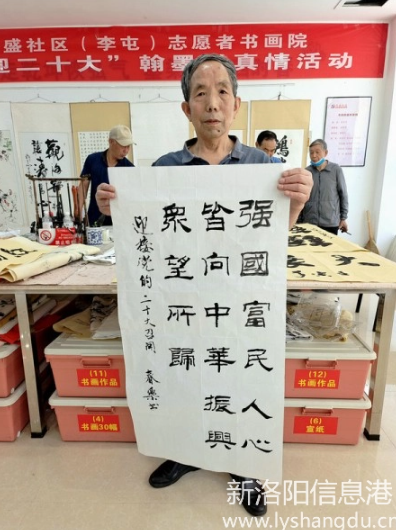 盛社区（李屯）志愿者书画院
迎二十大”翰墨真情活动
强國富民人心
皆向中華振興
衆望所歸
二十大召開
春樂书
(11)
书画作品
(4)
书画30幅
(12)
书画作品
(6)
宣纸
新洛阳信息港
www.lyshangdu.cn